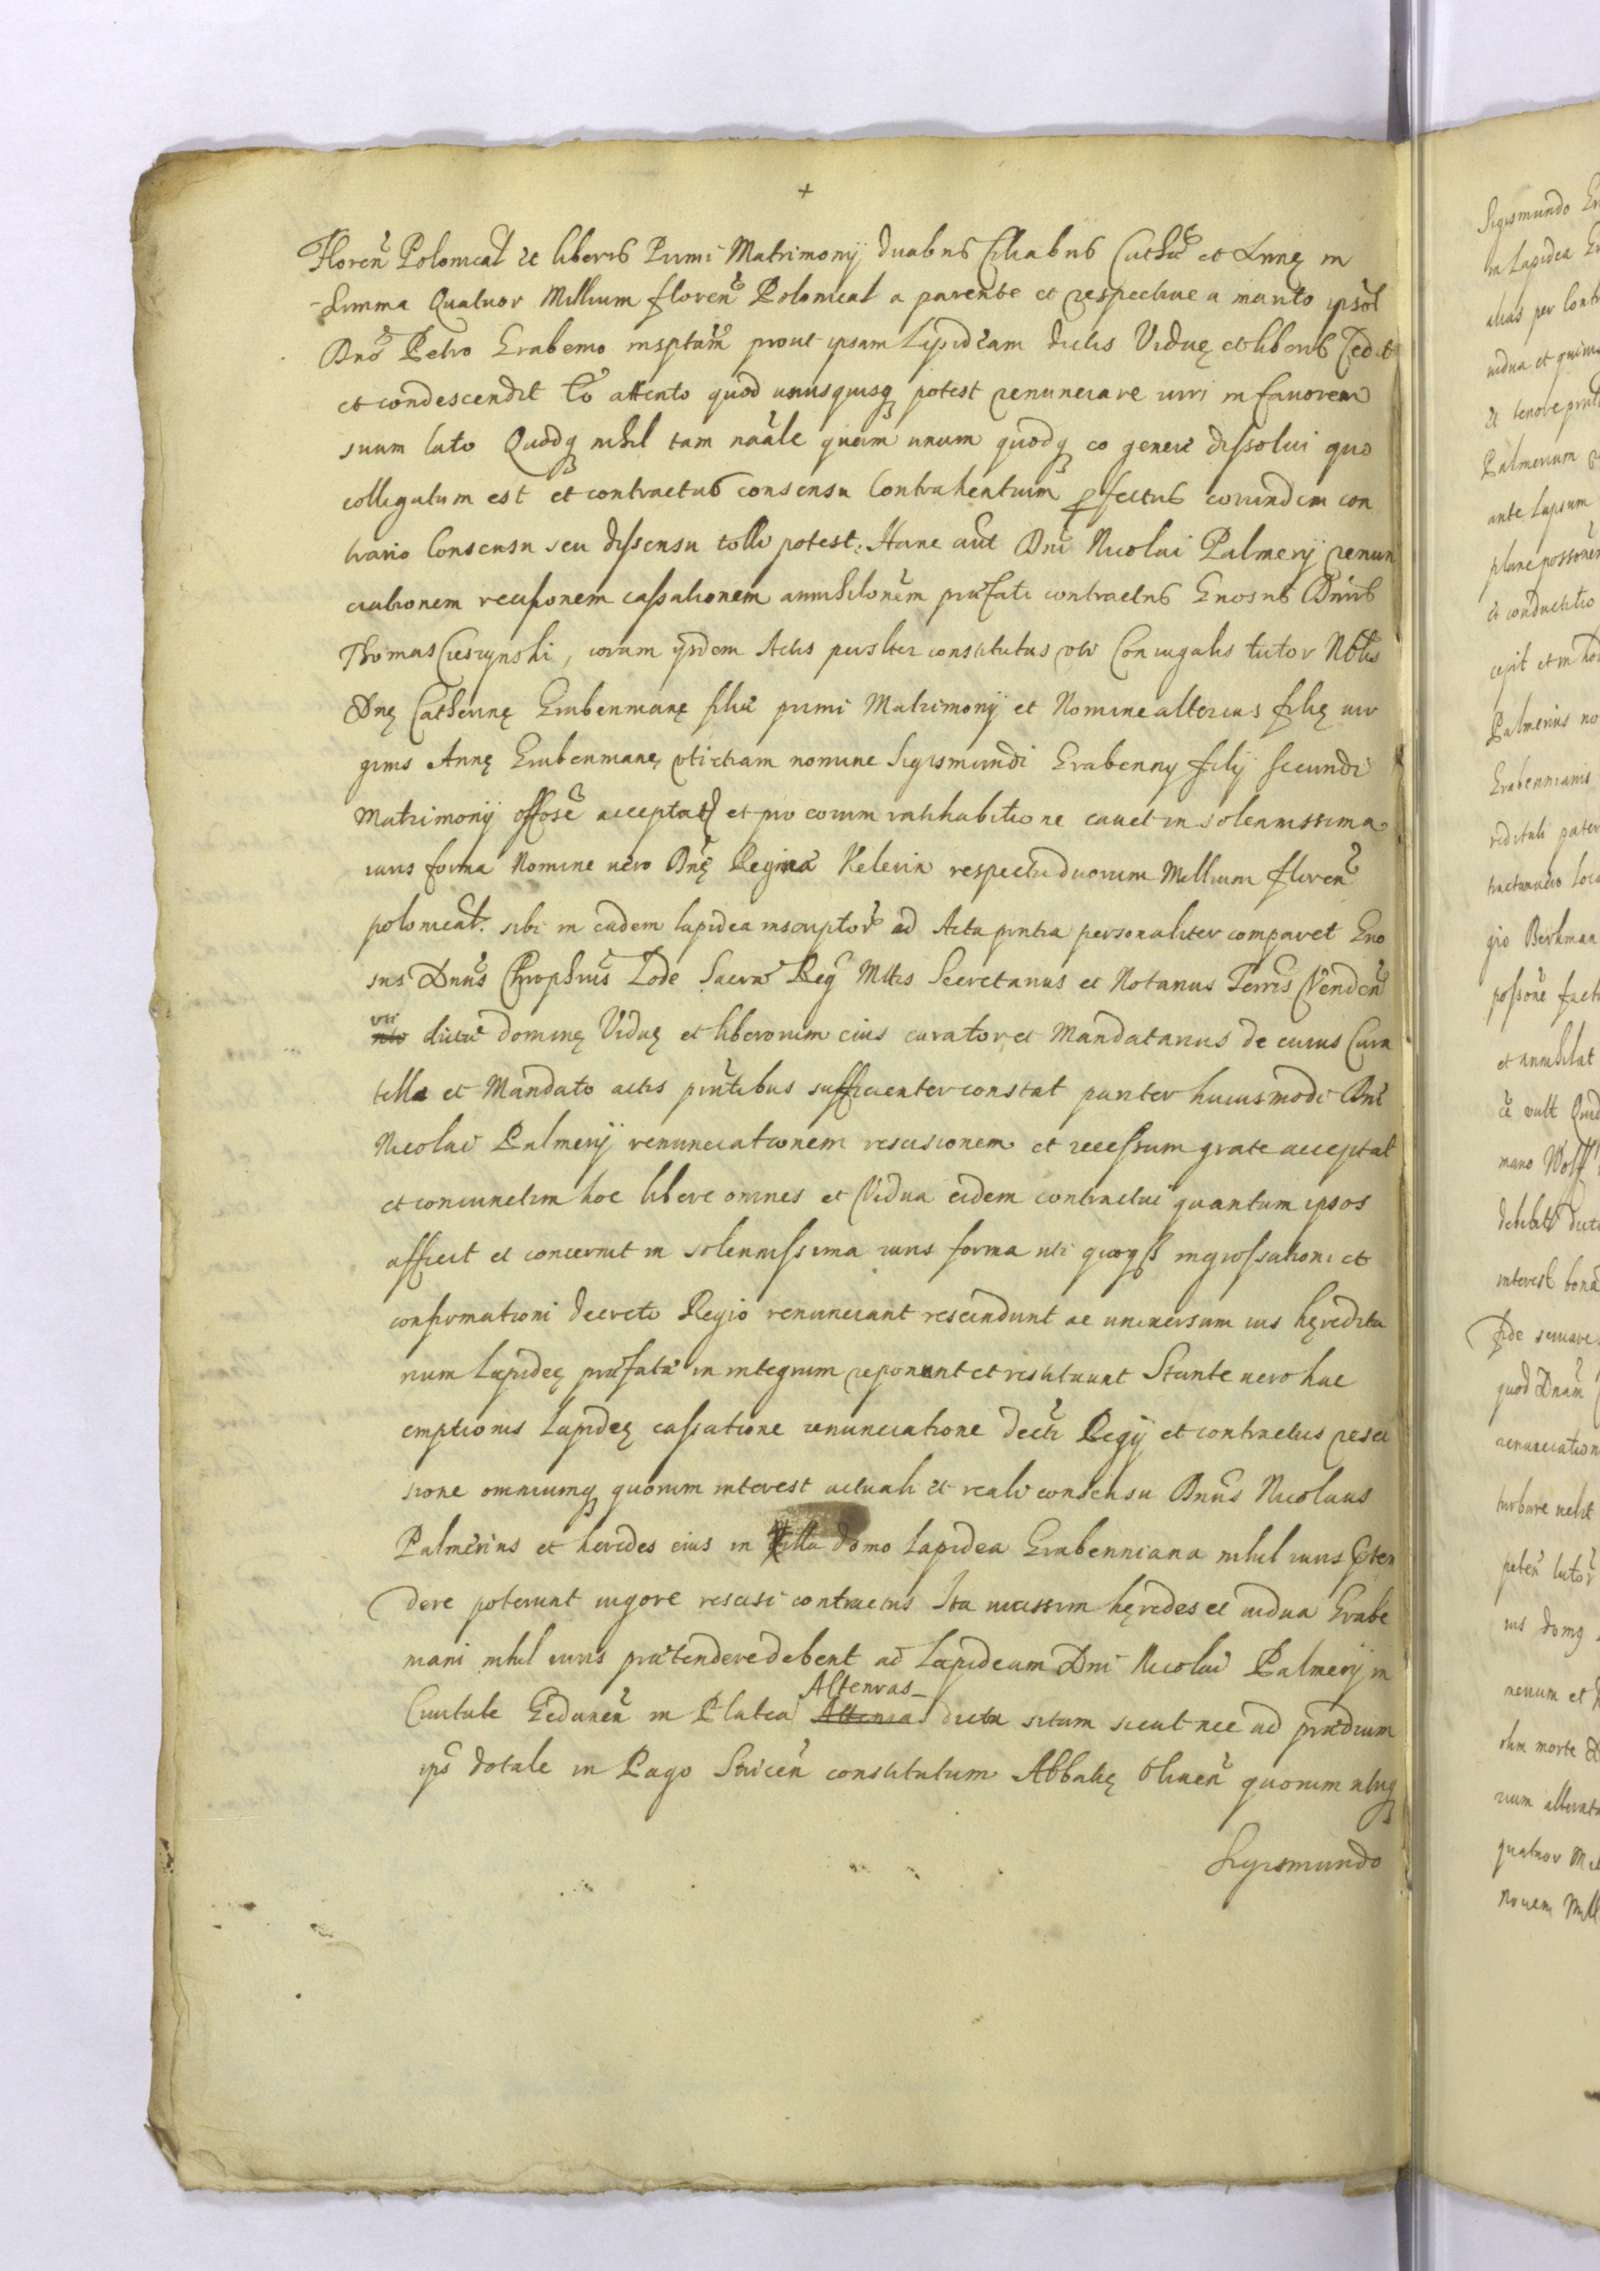 +
Floreñ Polonical et liberis Primi Matrimonÿ duabus filiabus Cathæ et Annę in
Summa Quatuor Millium floreñ Polonical a parente et respective a marito ipsoł
Dnō Petro Grabenio insptam̃ prout ipsam Lapideam dictis Viduę et liberis Cedit
et condescendit Eo attento quod unusquisq potest renunciare iuri in favorem
suum lato Quodq nihil tam nãale quam unum quodq eo genere dissolui quo
colligatum est et contractus consensu Contrahentium pfectus eorundem con
trario Consensu seu dissensu tolli potest. Hanc aut̃ Dni Nicolai Palmerÿ renun
ciationem recisionem cassationem annihilonẽm præfati contractus Gnosus Dnus
Thomas Cieszynski, coram ÿsdem Actis persłter constitutus uti Coniugalis tutor Nobłis
Dnę Catherinę Grabenmanę filiæ primi Matrimonÿ et Nomine alterius filię vir
ginis Annę Grabenmanę, uti etiam nomine Sigismundi Grabenny filÿ secundi
Matrimonÿ offõse acceptat et pro eorum ratihabitione cavet in solennissima
iuris forma Nomine vero Dnę Reginæ Kelerin respectu duorum Millium floreñ
polonical. sibi in eadem lapidea inscriptor̃ ad Acta pntia personaliter comparet Gno
sus Dnũs Chrophrus Zode Sacræ Reg Mttis Secretarius et Notarius Terris Vendeñ
uti
nto dictæ dominę Viduę et liberorum eius curator et Mandatarius de cuius Cura
tella et Mandato actis prñtibus sufficienter constat pariter huiusmodi Dni
Nicolai Palmerÿ renunciationem rescisionem et recessum grate acceptat
et coniunctim hoc libere omnes et Vidua eidem contractui quantum ipsos
afficit et concernit in solennissima iuris forma uti quoqs ingrossationi et
confirmationi decreto Regio renunciant rescindunt ac universum ius hęredita
rium Lapideę præfatæ in integrum reponunt et restituunt Stante vero hac
emptionis Lapideę cassatione renunciatione decti Regÿ et contractus resci
sione omniumq quorum interest actuali et reali consensu Dnũs Nicolaus
Palmerius et heredes eius in illa domo Lapidea Grabenniana nihil iuris ptẽn
dere poterunt vigore rescisi contractus Ita vicissim hęredes et vidua Grabe
mani nihil iuris prætendere debent ad Lapideam Dni Nicolai Palmerÿ in
Altenras_
Civitate Gedaneñ in Platea Altenras dicta sitam sicut nec ad prædium
ips dotale in Pago Striceñ constitutum Abbatię Oliveñ quorum utrq
Sigismundo
Sigismundo
in Lapidea
alias per
vidua et
et tenore
Palmerium
ante Lapsum
plane
et conductitio
cepit et in
Palmerius no
Grabennianis
gio Berkman
et annihilat
mano Wolff
interest
Fide
quod Dnam
renunciation
turbare
ius domq
olim morte
quatuor
Novem Mill